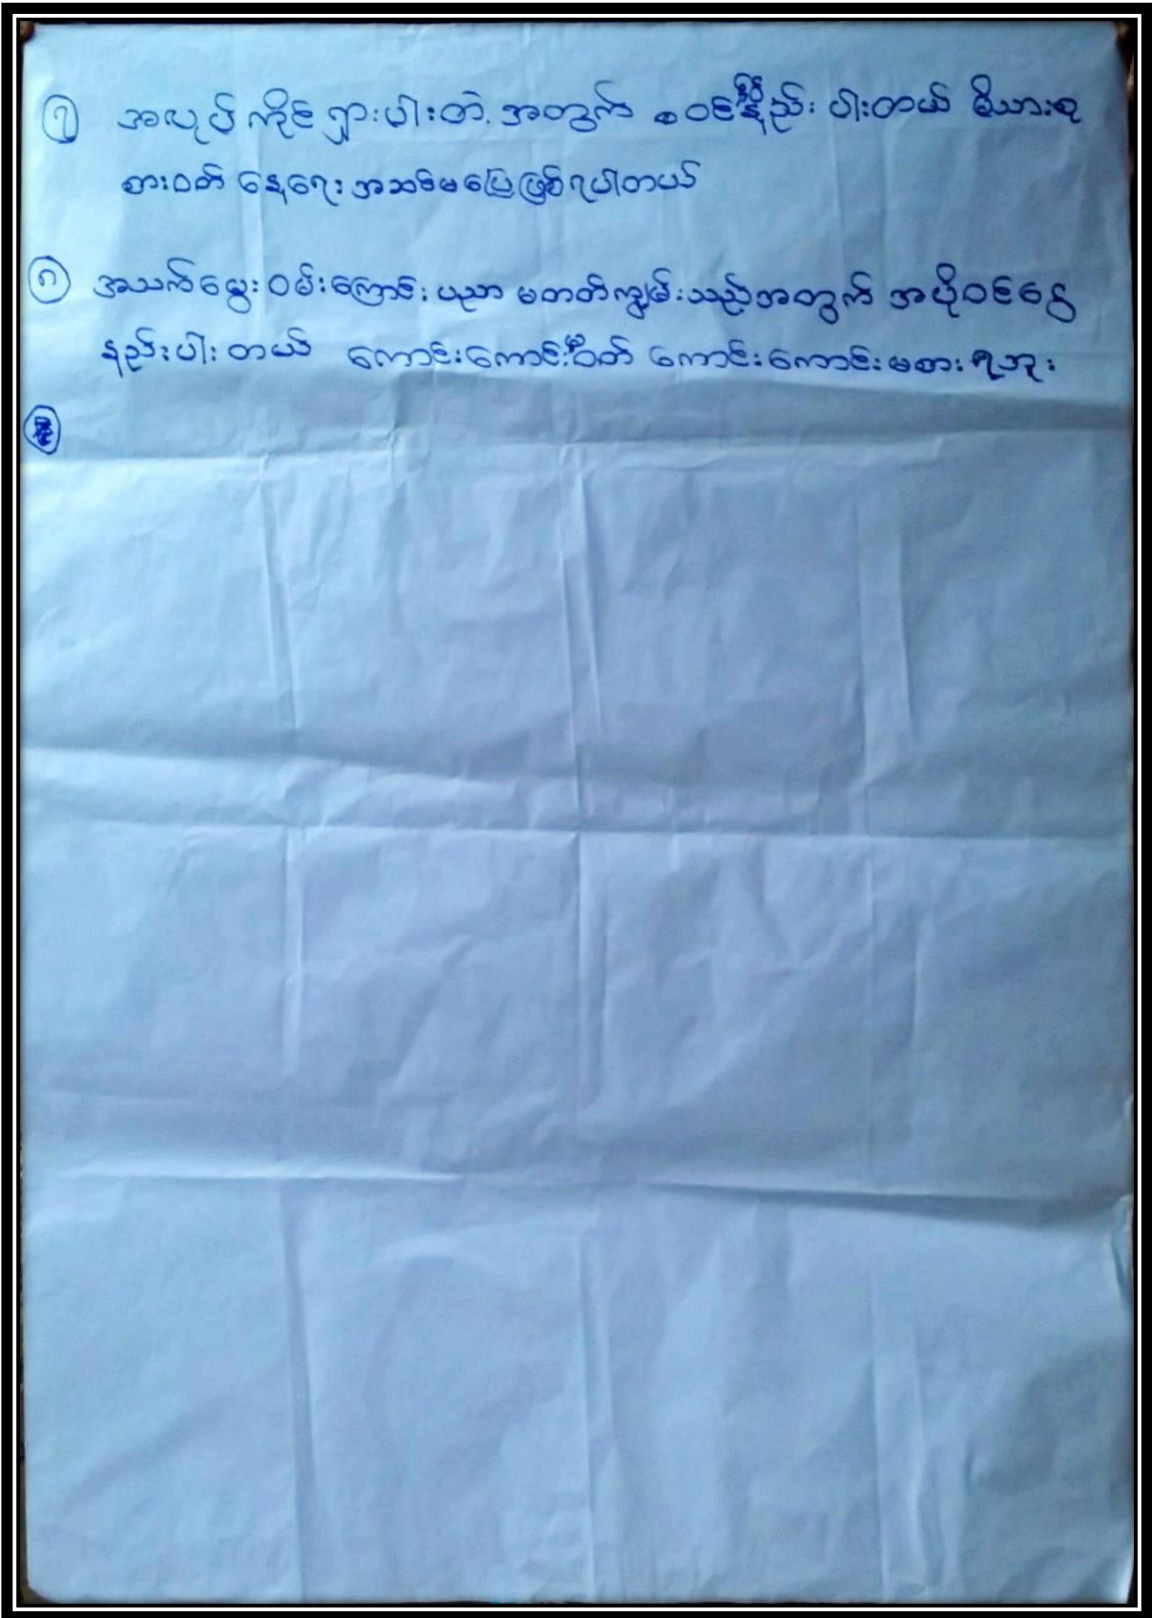 ၇ အလုပ် ကိုင် ရှားပါးတဲ့ အတွက် ဝင်ငွေနည်း ပါးတယ် မိသားစု
စားဝတ် နေရေး အဆင်မပြေဖြစ်ရပါတယ်
၈ အသက်မွေး ဝမ်းကြောင်း ပညာ မတတ်ကျွမ်းသည့်အတွက် အပိုဝင်ငွေ
နည်းပါး တယ် ကောင်းကောင်းဝတ် ကောင်းကောင်း မစား ရဘူး